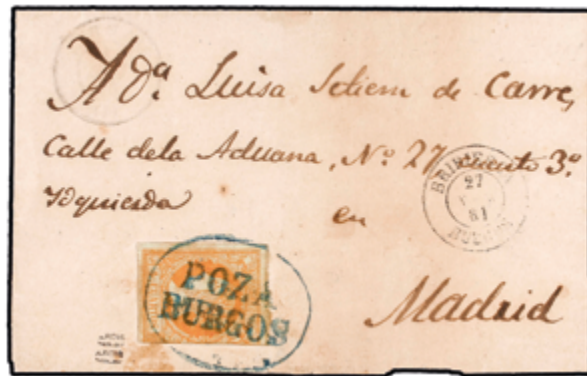 A Dª. Luisa de Carre,
Calle dela Aduana, Nº 27 cuarto 3º.
Yzquierda
en
Madrid
27
61
BURGOS
POZA
BURGOS